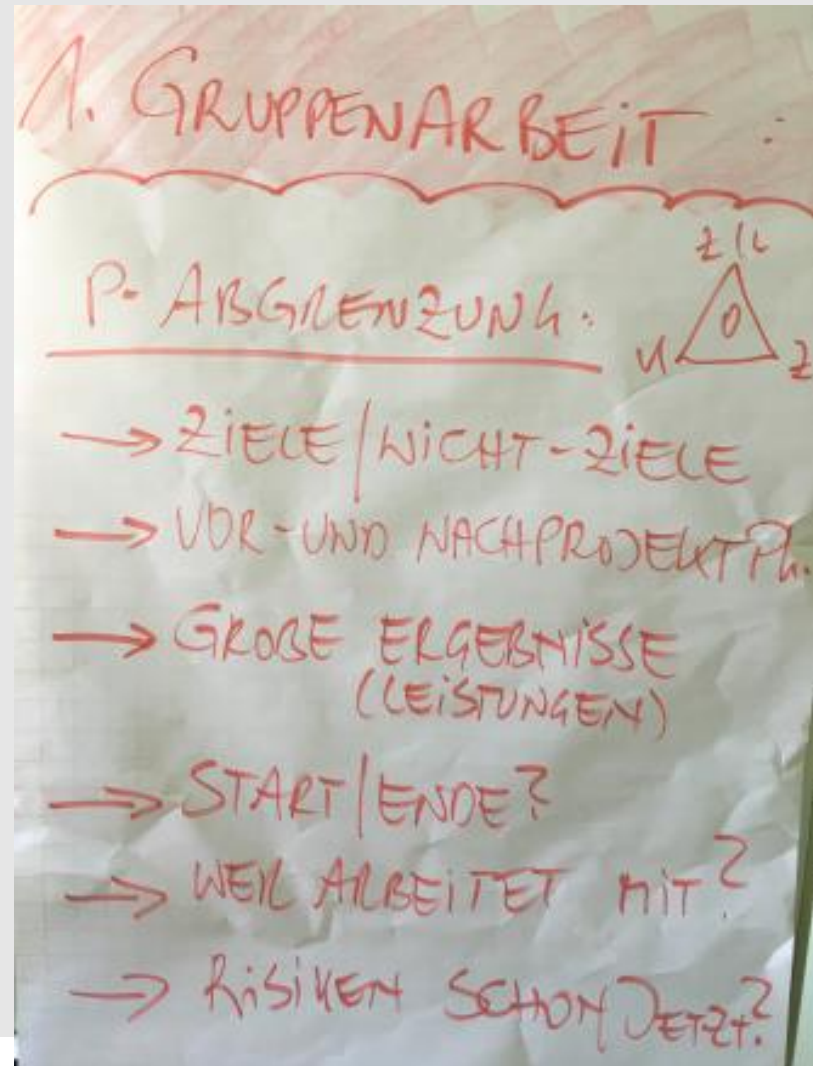 1. GRUPPENARBEIT :
P- ABGRENZUNG:
Z/L
K Z
→ ZIELE/NICHT-ZIELE
→ VOR-UND NACHPROJEKTPh.
→ GROBE ERGEBNISSE
(LEISTUNGEN)
→ START/ENDE?
→ WER ARBEITET MIT?
→ RISIKEN SCHON JETZT?